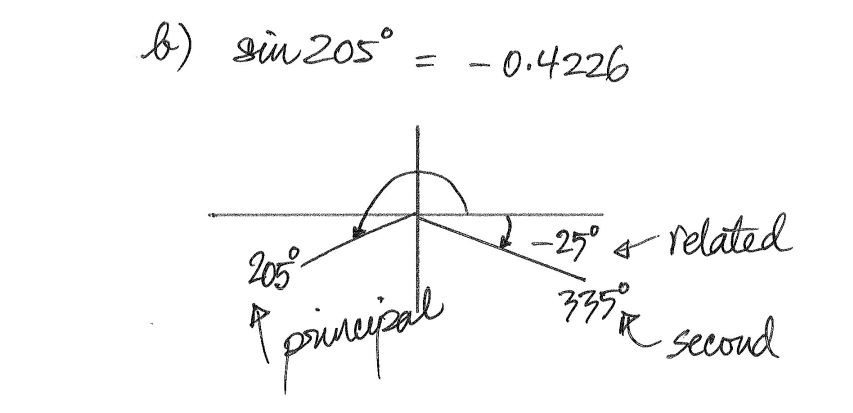 b) sin 205° = - 0.4226
-25° related
205°
335°
principal
second